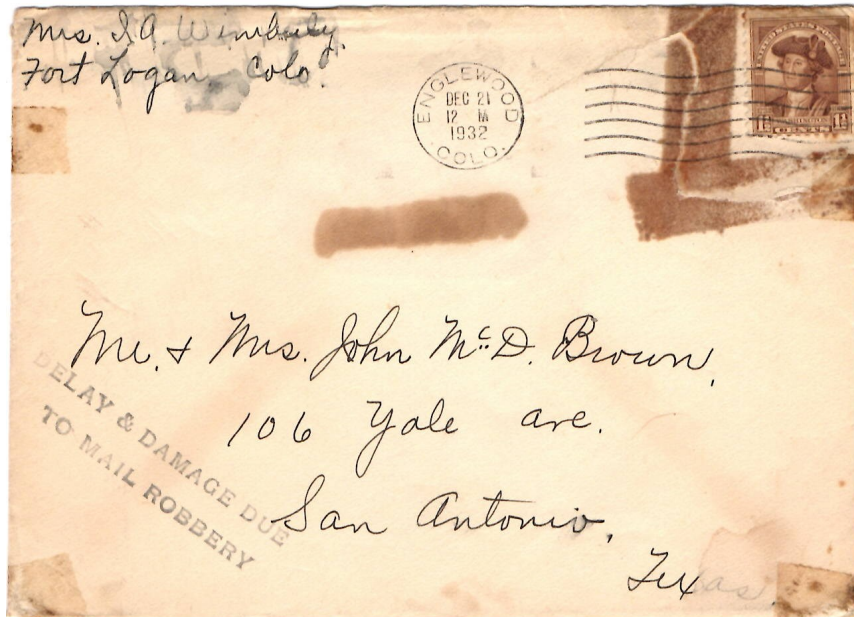 Mrs. I. A. Wimberly.
Fort Logan, Colo.
ENGLEWOOD
DEC 21
12 M
1932
COLO.
UNITED STATES POSTAGE
WASHINGTON
1½ 1½
CENTS
Mr. & Mrs. John McD. Brown,
106 Yale Ave.
San Antonio,
Texas.
DELAY & DAMAGE DUE
TO MAIL ROBBERY